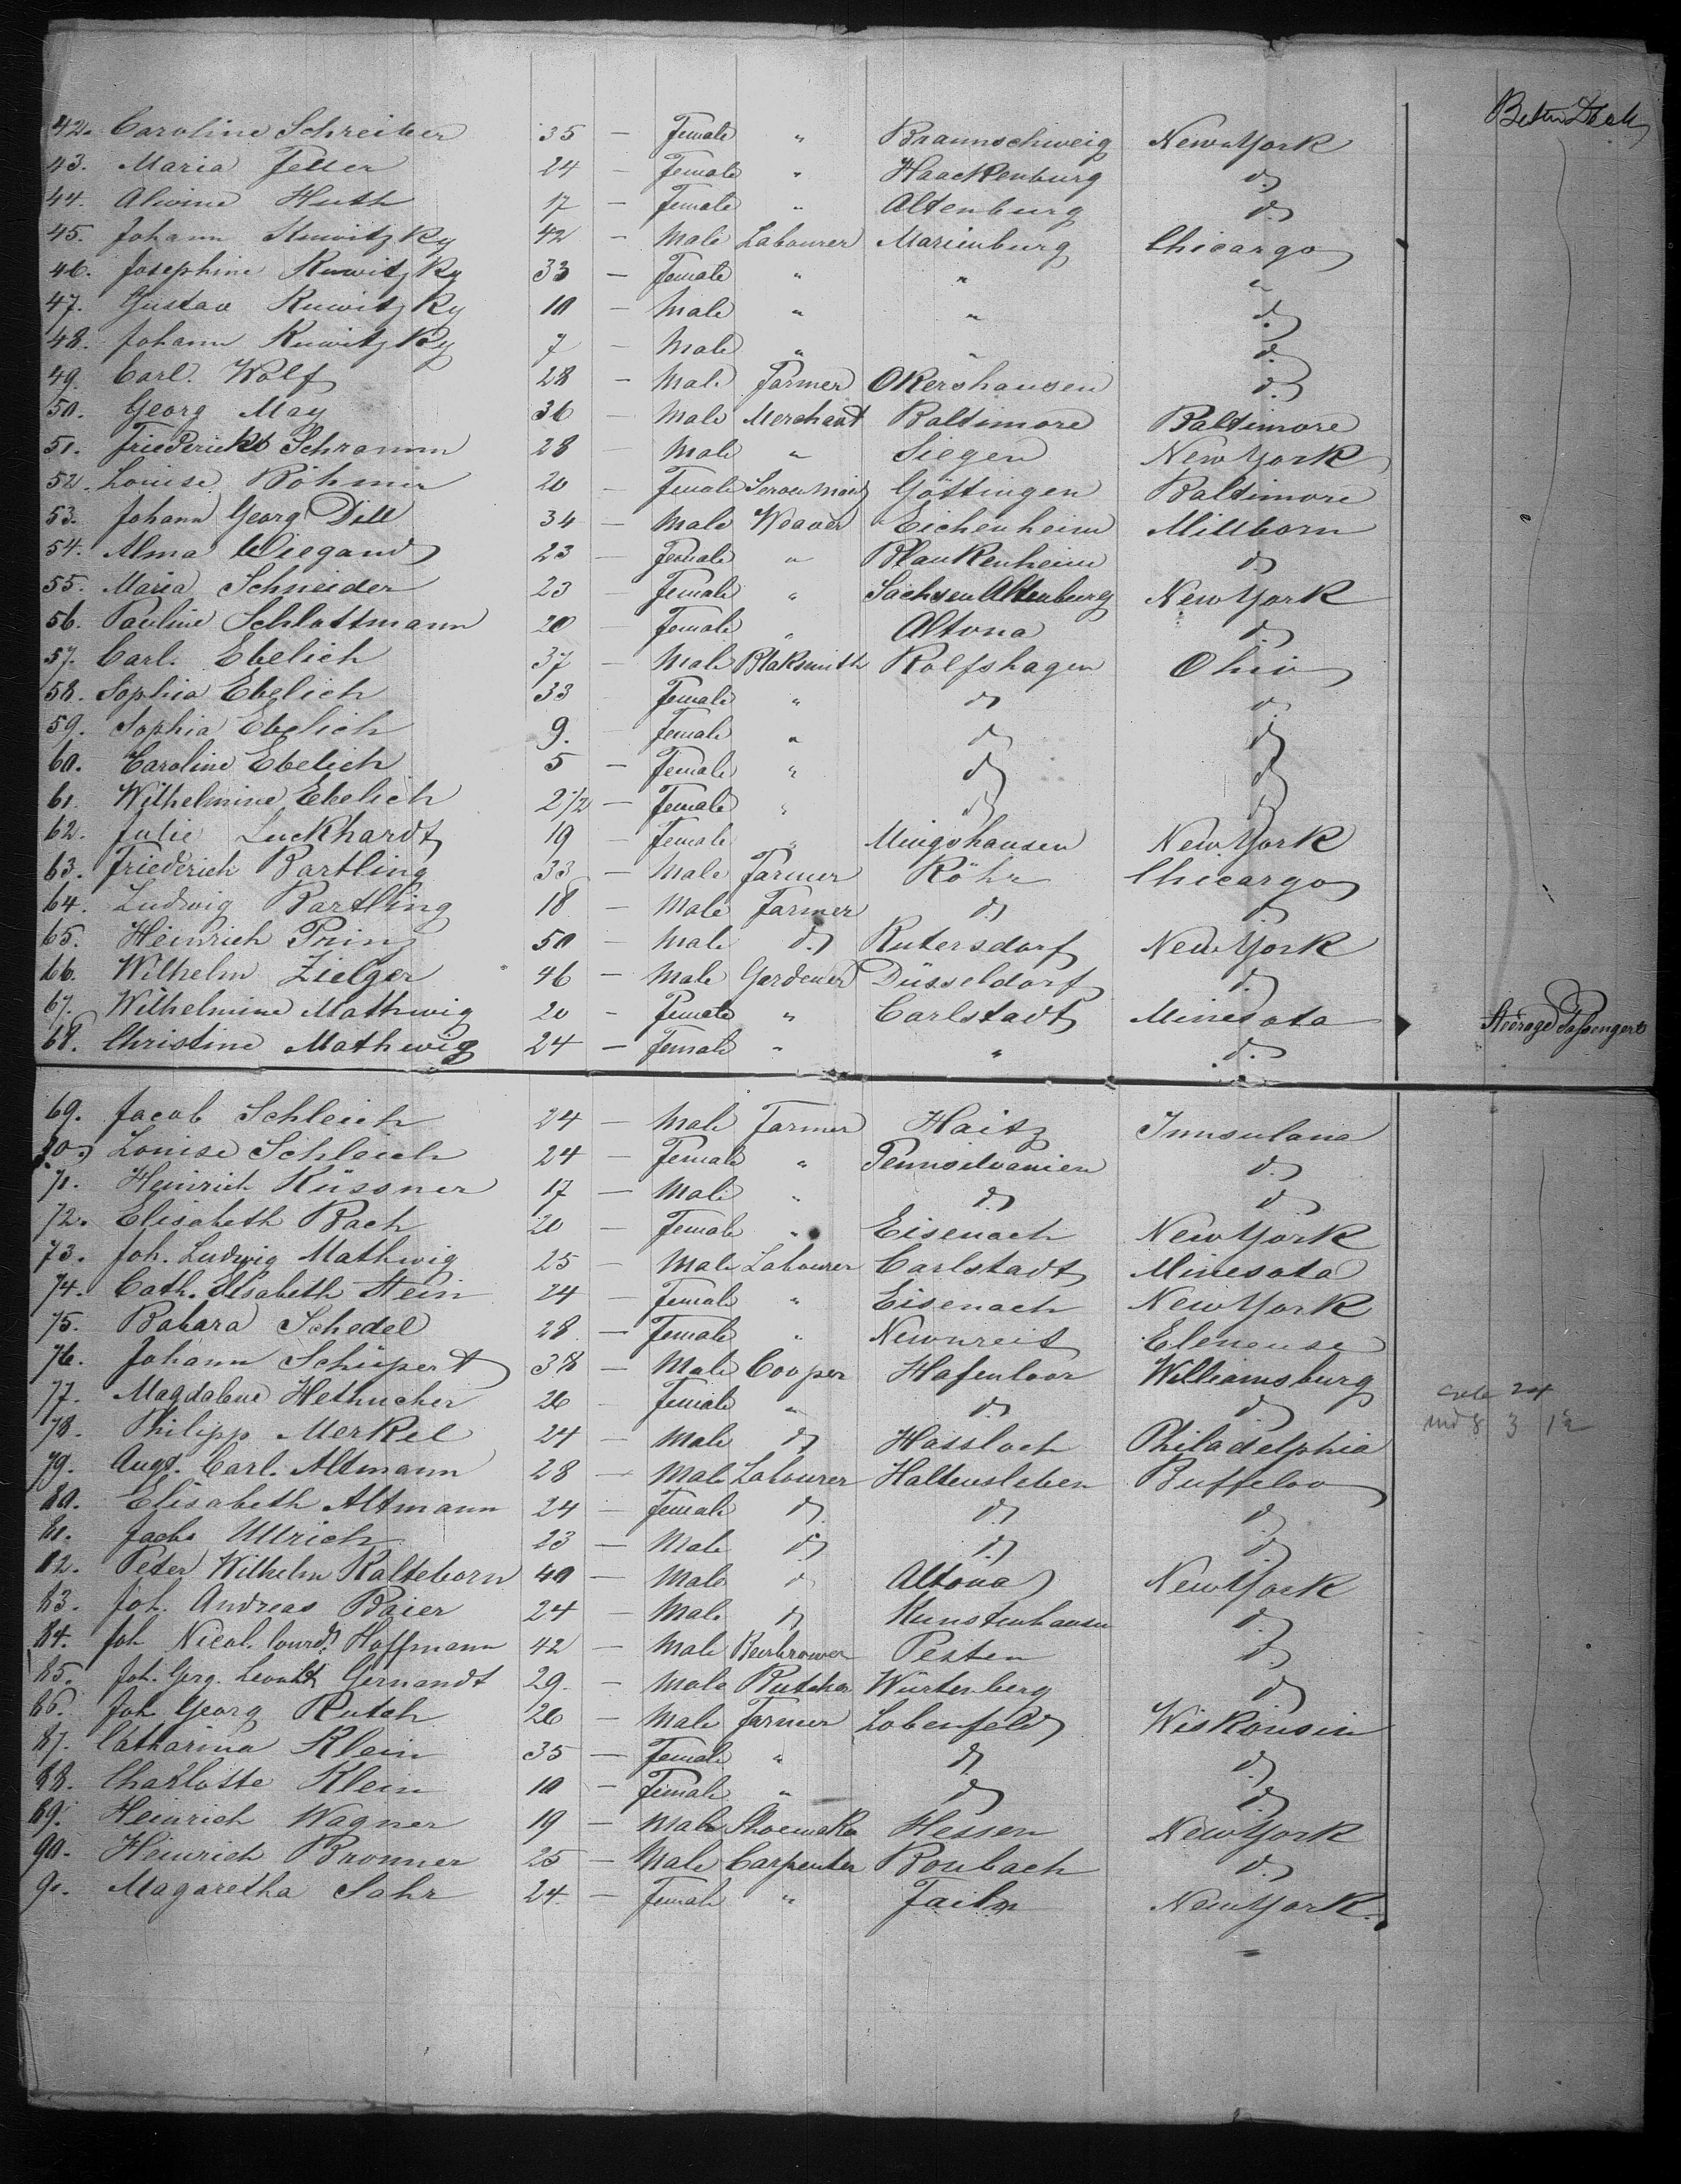 Betw Deck
42. Caroline Schreiber 35 — Female " Braunschweig New York
43. Maria Feller 24 — Female " Haackenburg d.
44. Alwine Huth 17 — Female " Altenburg d.
45. Johann Kuwitzky 42 — Male Labourer Marienburg Chicargo
46. Josephine Kuwitzky 33 — Female " " "
47. Gustav Kuwitzky 10 — Male " " d.
48. Johann Kuwitzky 7 — Male " " d.
49. Carl. Wolf 28 — Male Farmer Okershausen d.
50. Georg May 36 — Male Merchant Baltimore Baltimore
51. Friederich Schramm 28 — Male " Siegen New York
52. Louise Böhmer 20 — Female Göttingen Baltimore
53. Johann Georg Dill 34 — Male Weaver Eichenheim Millborn
54. Alma Wiegand 23 — Female " Blankenheim d.
55. Maria Schneider 23 — Female " Sachsen Altenburg New York
56. Pauline Schlottmann 20 — Female " Altona d.
57. Carl. Ebelich 37 — Male Blaksmith Rolfshagen Ohio
58. Sophia Ebelich 33 — Female " d. d.
59. Sophia Ebelich 9. — Female " d. d.
60. Caroline Ebelich 5 — Female " d. d.
61. Wilhelmine Ebelich 2 1/2 — Female " d. d.
62. Julie Luckhardt 19 — Female " Mingshausen New York
63. Friederich Bartling 33 — Male Farmer Röhr Chicargo
64. Ludwig Bartling 18 — Male Farmer d. d.
65. Heinrich Prinz 50 — Male d. Rutersdorf New York
66. Wilhelm Zielger 46 — Male Gardener Düsseldorf d.
67. Wilhelmine Mathwig 20 — Female " Carlstadt Minesota
Steerage Passengers
68. Christine Mathwig 24 — Female " " d.
69. Jacob Schleich 24 — Male Farmer Haitz
70. Louise Schleich 24 — Female " Pennsilvanien d.
71. Heinrich Küssner 17 — Male " d. d.
72. Elisabeth Bach 20 — Female " Eisenach New York
73. Joh. Ludwig Mathwig 25 — Male Labourer Carlstadt Minesota
74. Cath. Elisabeth Stein 24 — Female " Eisenach New York
75. Babara Schedel 28 — Female " Newnreit
76. Johann Schüpert 38 — Male Cooper Hafenloor Williamsburg
77. Magdalene Hethucher 26 — Female " d. d.
78. Philipp Merkel 24 — Male d. Hassloch Philadelphia
79. Augt. Carl. Altmann 28 — Male Labourer Haltensleben Buffeloo
80. Elisabeth Altmann 24 — Female d. d. d.
81. Ullrich 23 — Male d. d. d.
82. Peter Wilhelm Kalteborn 40 — Male d. Altona New York
83. Joh. Andreas Baier 24 — Male d. d.
84. Joh Nicol. Hoffmann 42 — Male Pesten d.
85. Joh. Grg. Gernandt 29. — Male Butcher Würtenberg d.
86. Joh Georg Rutsch 26 — Male Farmer Lobenfeld Wiskonsin
87. Catharina Klein 35 — Female " d. d.
88. Charlotte Klein 10 — Female " d. d.
89. Heinrich Wagner 19 — Male Shoemaker Hessen New York
90. Heinrich Bronner 25 — Male Carpenter Bonbach d.
91. Magaretha Sahr 24 — Female " New York.